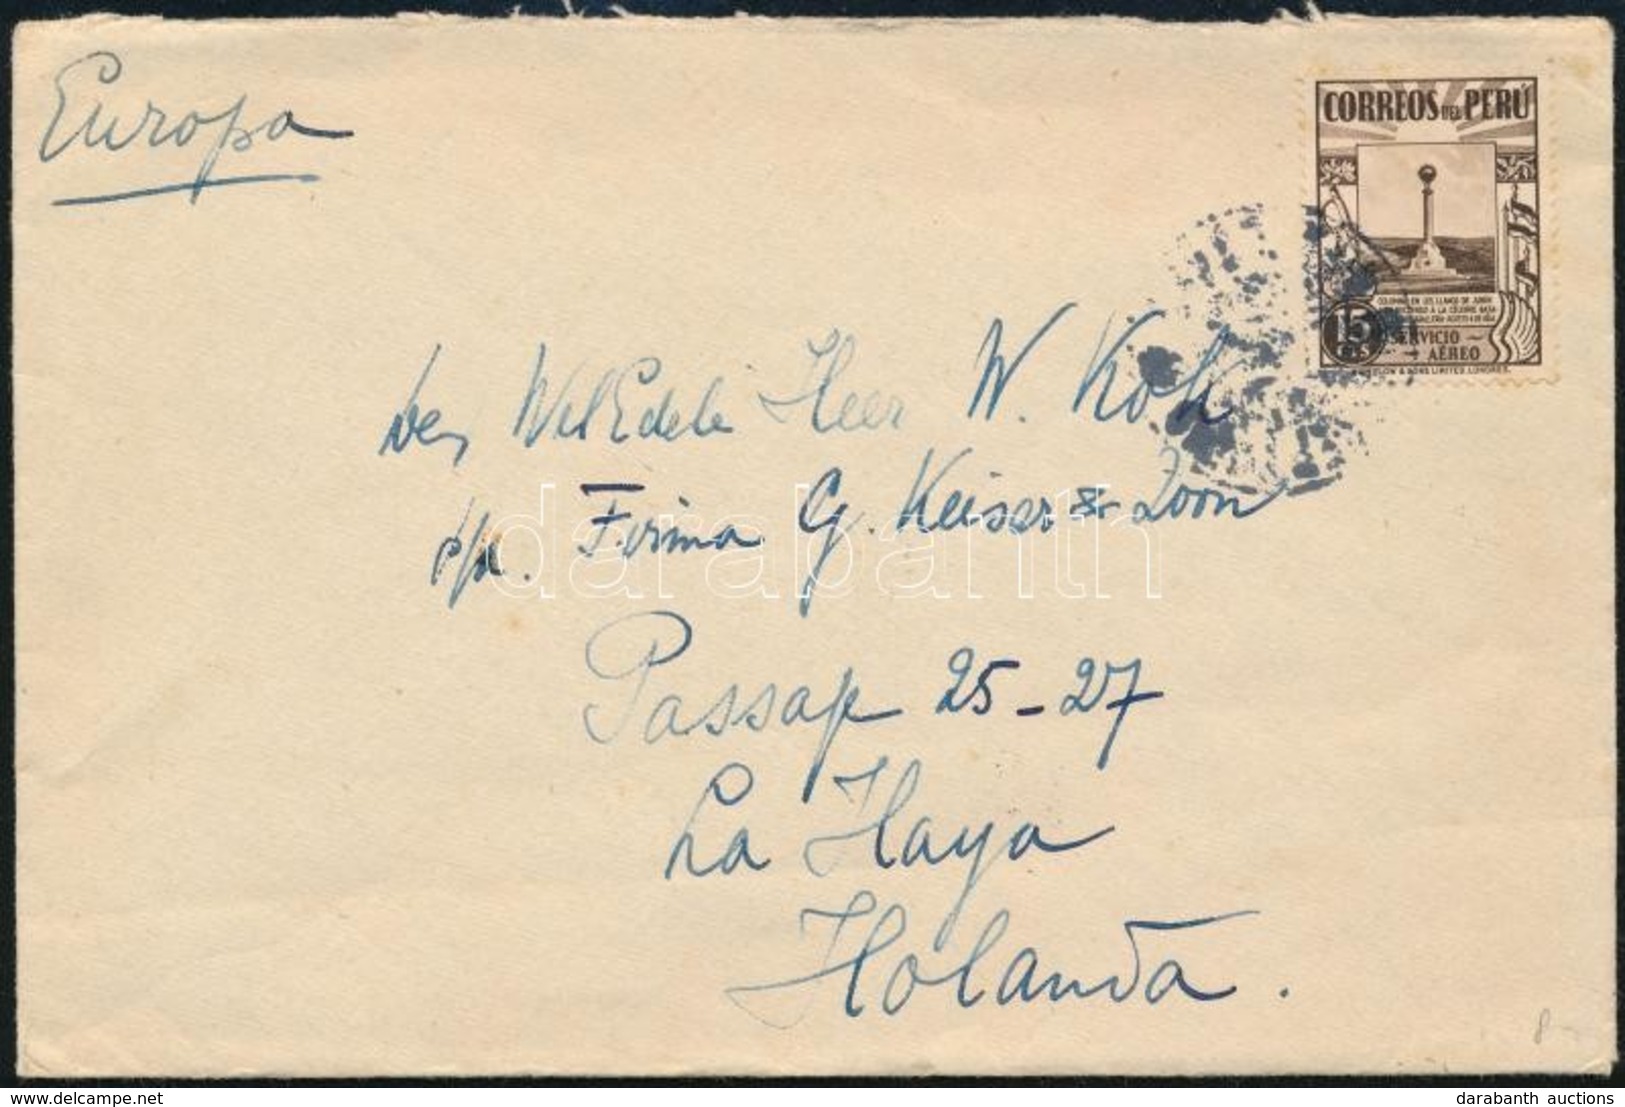 Europa
CORREOS DEL PERÚ
COLUMNA EN LOS LLANOS DE JUNIN
A LA CELEBRE BATA
AGOSTO 6 DE
15
SERVICIO
AÉREO
& SONS LIMITED, LONDRES.
den WelEdele Heer W. Kok
p/a. Firma G. Keiser & Zoon
Passage 25-27
La Haya
Holanda.
darabanth
8
delcampe.net
darabanth auctions